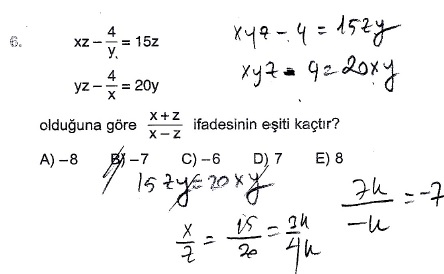 6. xz − 4/y = 15z
xyz − 4 = 15zy
yz − 4/x = 20y
xyz − 4 = 20xy
olduğuna göre (x+z)/(x−z) ifadesinin eşiti kaçtır?
A) −8 B) −7 C) −6 D) 7 E) 8
15zy = 20xy
x/z = 15/20 = 3k/4k
7k/−k = −7